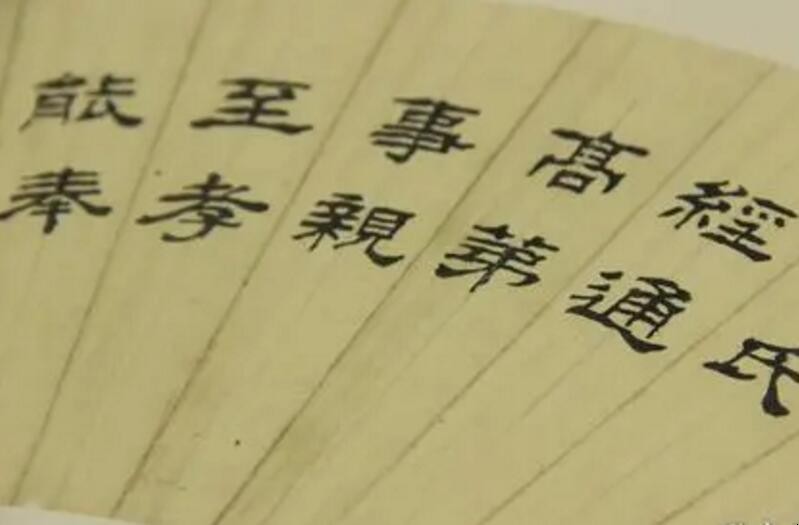 氏
經通
高第
事親
至孝
能奉